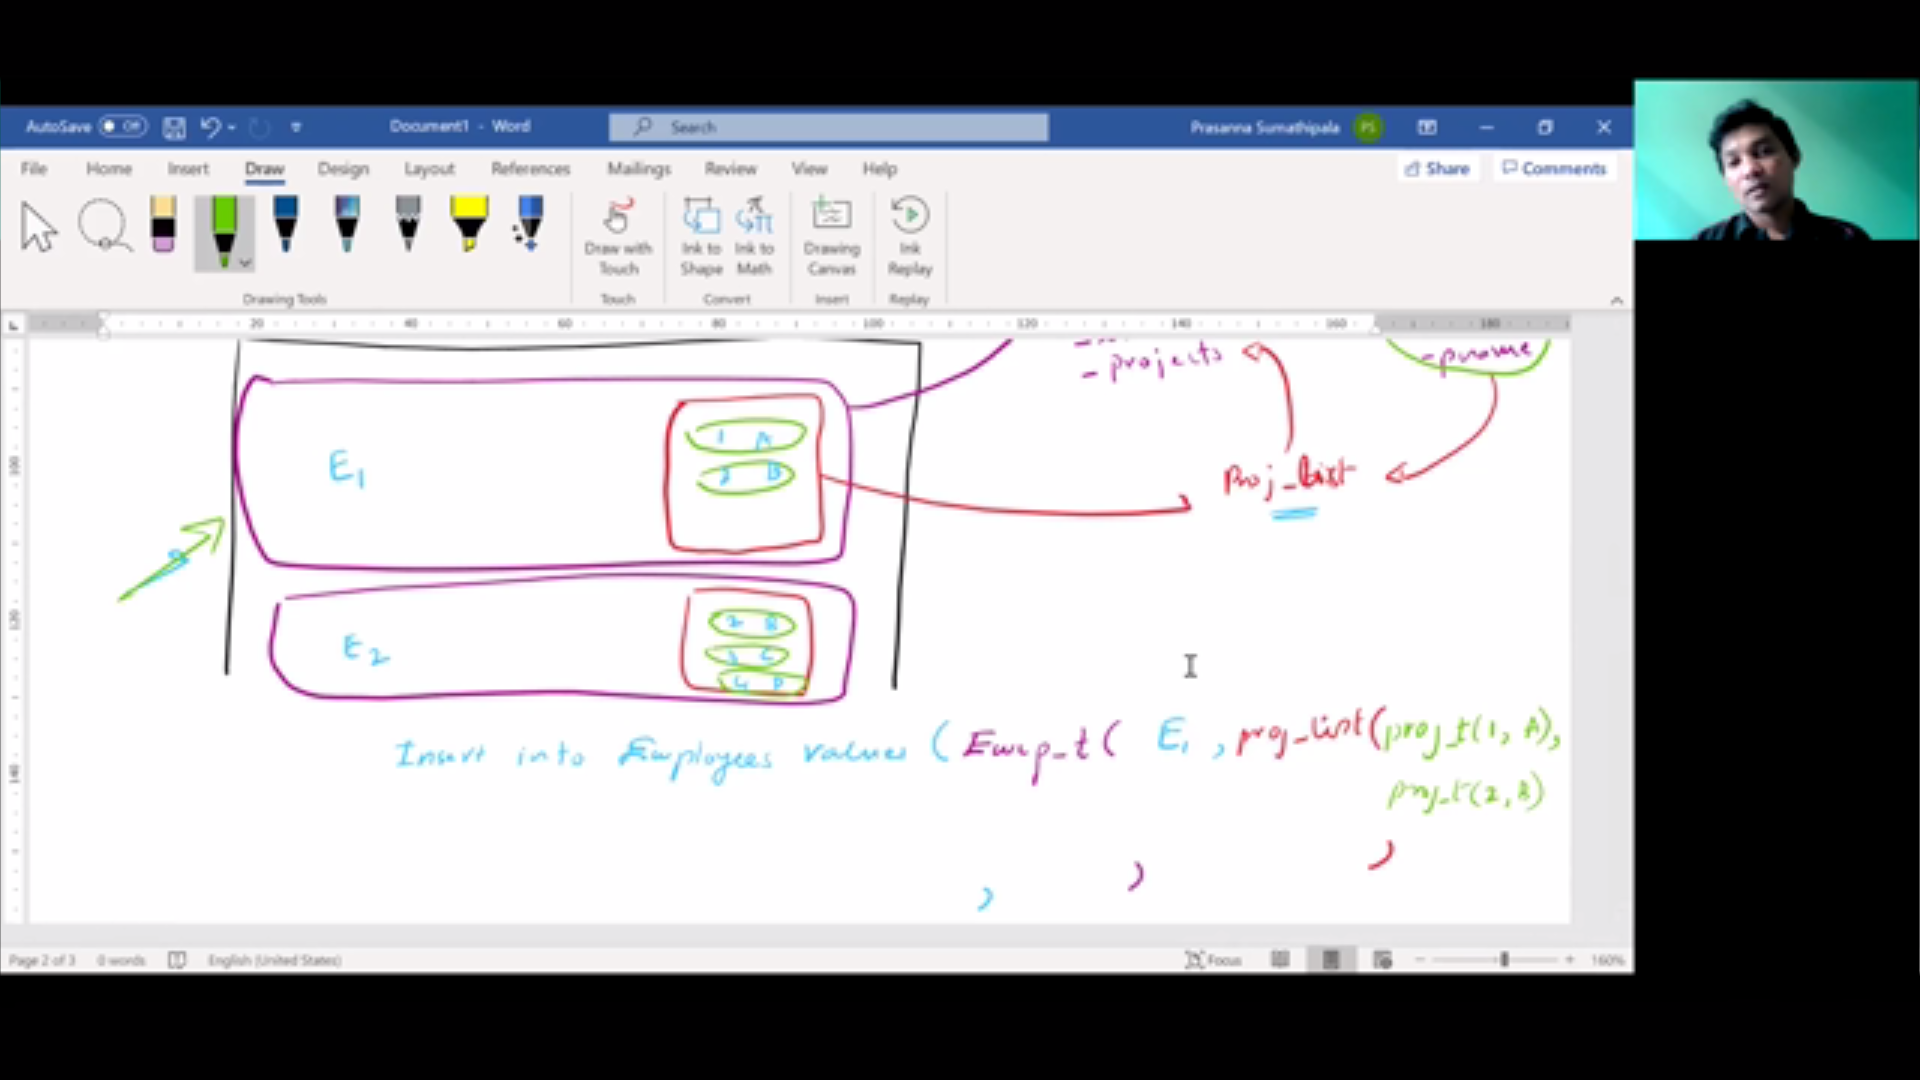 AutoSave Off Document1 - Word Search Prasanna Sumathipala PS
File Home Insert Draw Design Layout References Mailings Review View Help Share Comments
Draw with Touch
Ink to Shape
Ink to Math
Drawing Canvas
Ink Replay
Drawing Tools Touch Convert Insert Replay
20 40 60 80 100 120 140 160 180
- projects
- pname
1 A
2 B
E1
Proj_List
2 B
3 C
4 D
E2
Insert into Employees values ( Emp_t ( E1 , proj_list ( proj_t(1, A),
proj_t(2, B)
)
)
)
100
120
140
Page 2 of 3 0 words English (United States) Focus 160%